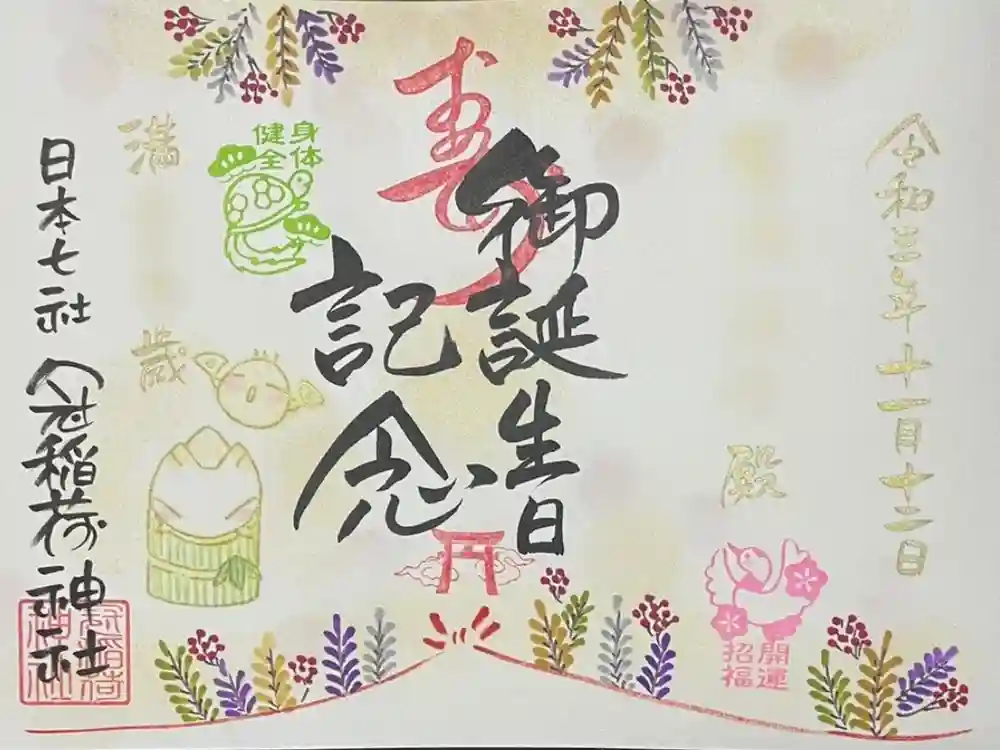 令和三年十一月十二日
殿
開運
招福
寿
御誕生日
記念
身体
健全
満
歳
日本七社 冠稲荷神社
冠稲荷